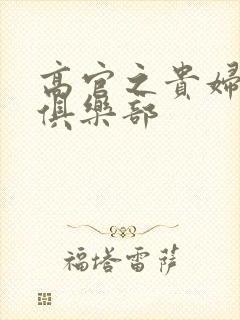 高官之貴婦
俱樂部
福塔雷萨